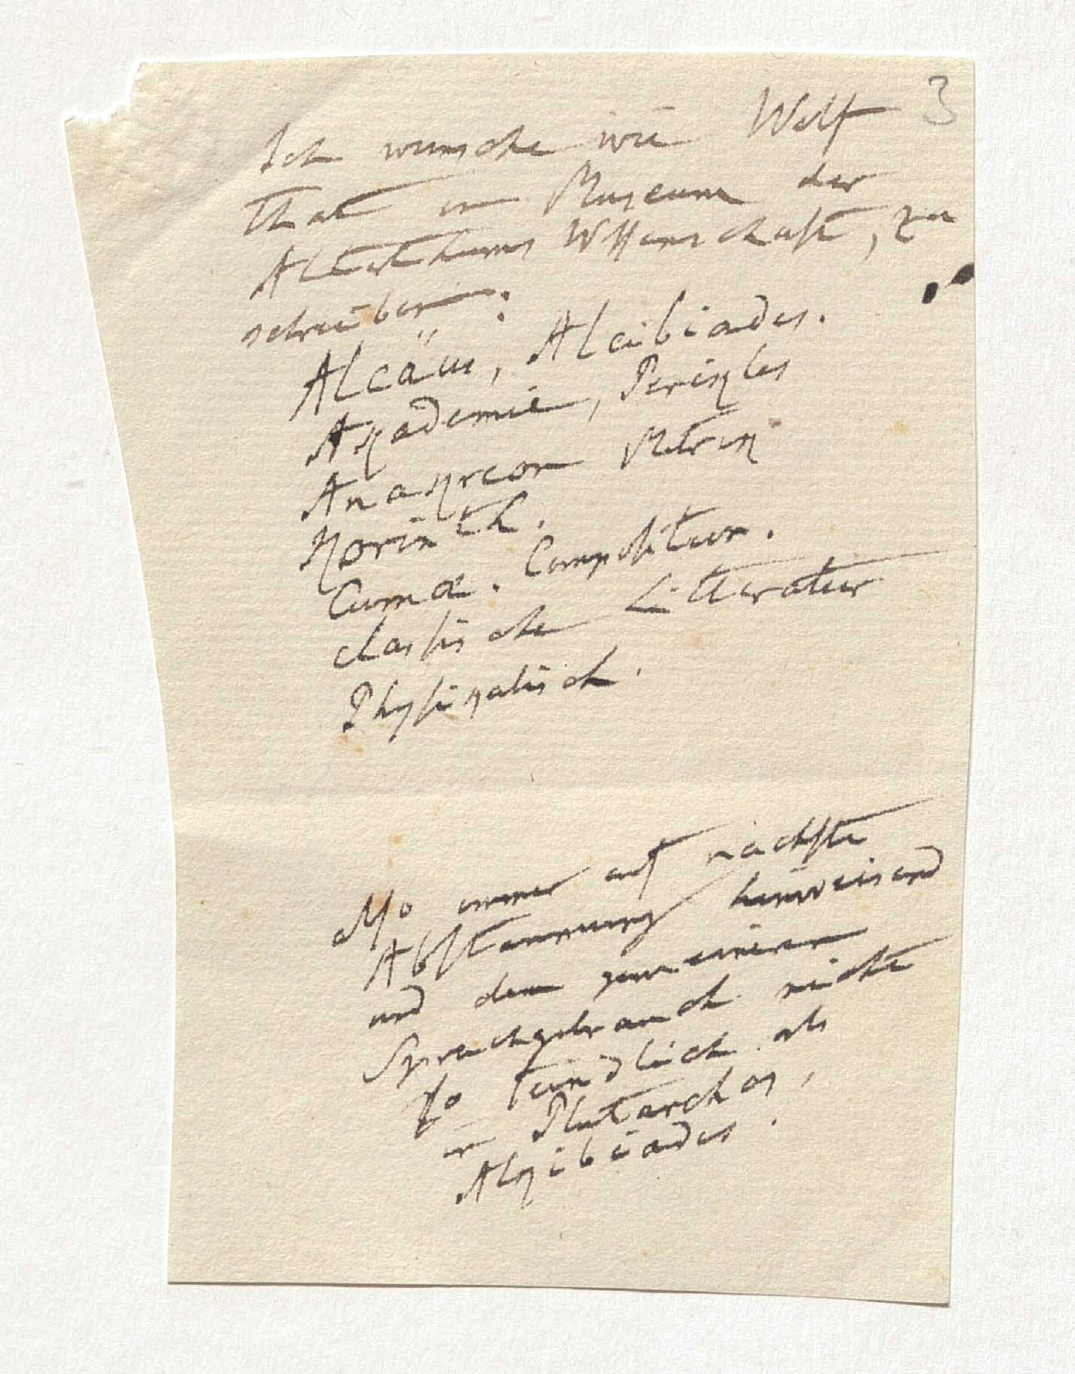 3
Ich wünsche wie Wolf
that im Museum der
Alterthums Wissenschaft, zu
schreiben:
Alcäus, Alcibiades.
Akademie, Perikles
Anakreon Metrik
Korinth.
Cumæ. Compositum.
classische Litteratur
Physikalisch.
Also immer auf nächste
Abstammung hinweisend
und dem gemeinen
Sprachgebrauch nicht
so feindlich als
in Plutarchos,
Alkibiades.